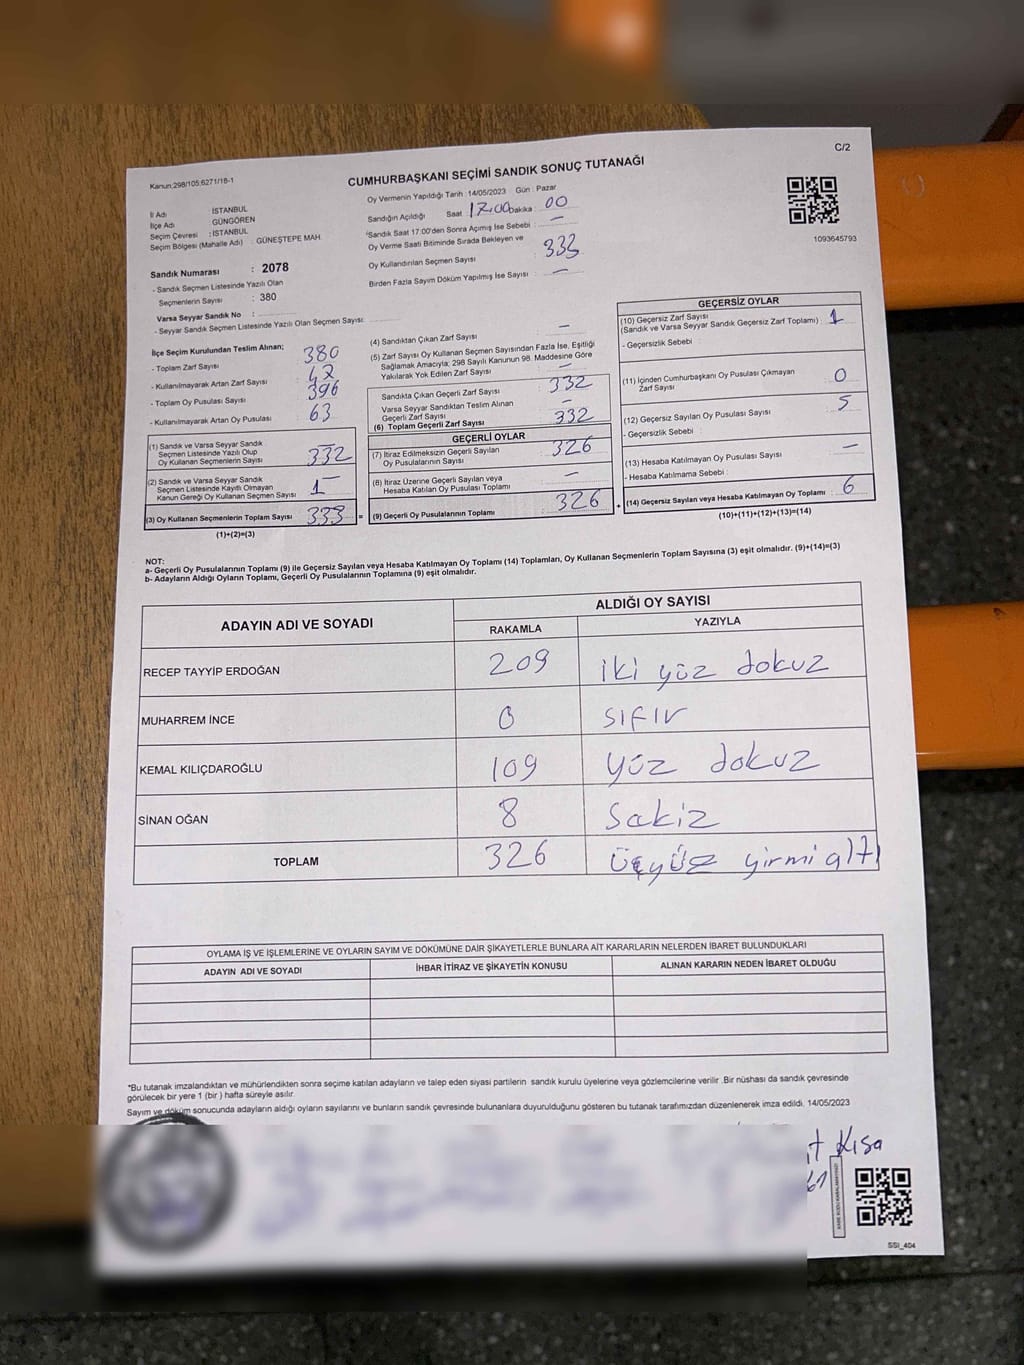 C/2
Kanun:298/105;6271/18-1
CUMHURBAŞKANI SEÇİMİ SANDIK SONUÇ TUTANAĞI
Oy Vermenin Yapıldığı Tarih : 14/05/2023 Gün : Pazar
İl Adı : İSTANBUL
İlçe Adı : GÜNGÖREN
Seçim Çevresi : İSTANBUL
Seçim Bölgesi (Mahalle Adı) : GÜNEŞTEPE MAH.
Sandığın Açıldığı Saat : 17:00 Dakika : 00
*Sandık Saat 17:00'den Sonra Açılmış İse Sebebi : —
Oy Verme Saati Bitiminde Sırada Bekleyen ve
Oy Kullandırılan Seçmen Sayısı : 333
Birden Fazla Sayım Döküm Yapılmış İse Sayısı : —
1093645793
Sandık Numarası : 2078
- Sandık Seçmen Listesinde Yazılı Olan
Seçmenlerin Sayısı : 380
Varsa Seyyar Sandık No :
- Seyyar Sandık Seçmen Listesinde Yazılı Olan Seçmen Sayısı:
İlçe Seçim Kurulundan Teslim Alınan;
- Toplam Zarf Sayısı 380
- Kullanılmayarak Artan Zarf Sayısı 47
- Toplam Oy Pusulası Sayısı 396
- Kullanılmayarak Artan Oy Pusulası 63
(1) Sandık ve Varsa Seyyar Sandık
Seçmen Listesinde Yazılı Olup
Oy Kullanan Seçmenlerin Sayısı 332
(2) Sandık ve Varsa Seyyar Sandık
Seçmen Listesinde Kayıtlı Olmayan
Kanun Gereği Oy Kullanan Seçmen Sayısı 1
(3) Oy Kullanan Seçmenlerin Toplam Sayısı 333 =
(1)+(2)=(3)
(4) Sandıktan Çıkan Zarf Sayısı —
(5) Zarf Sayısı Oy Kullanan Seçmen Sayısından Fazla İse, Eşitliği
Sağlamak Amacıyla; 298 Sayılı Kanunun 98. Maddesine Göre
Yakılarak Yok Edilen Zarf Sayısı : —
Sandıkta Çıkan Geçerli Zarf Sayısı : 332
Varsa Seyyar Sandıktan Teslim Alınan
Geçerli Zarf Sayısı : —
(6) Toplam Geçerli Zarf Sayısı : 332
GEÇERLİ OYLAR
(7) İtiraz Edilmeksizin Geçerli Sayılan
Oy Pusulalarının Sayısı : 326
(8) İtiraz Üzerine Geçerli Sayılan veya
Hesaba Katılan Oy Pusulası Toplamı : —
(9) Geçerli Oy Pusulalarının Toplamı : 326 +
GEÇERSİZ OYLAR
(10) Geçersiz Zarf Sayısı
(Sandık ve Varsa Seyyar Sandık Geçersiz Zarf Toplamı) : 1
- Geçersizlik Sebebi :
(11) İçinden Cumhurbaşkanı Oy Pusulası Çıkmayan
Zarf Sayısı : 0
(12) Geçersiz Sayılan Oy Pusulası Sayısı : 5
- Geçersizlik Sebebi :
(13) Hesaba Katılmayan Oy Pusulası Sayısı : —
- Hesaba Katılmama Sebebi :
(14) Geçersiz Sayılan veya Hesaba Katılmayan Oy Toplamı : 6
(10)+(11)+(12)+(13)=(14)
NOT:
a- Geçerli Oy Pusulalarının Toplamı (9) ile Geçersiz Sayılan veya Hesaba Katılmayan Oy Toplamı (14) Toplamları, Oy Kullanan Seçmenlerin Toplam Sayısına (3) eşit olmalıdır. (9)+(14)=(3)
b- Adayların Aldığı Oyların Toplamı, Geçerli Oy Pusulalarının Toplamına (9) eşit olmalıdır.
ADAYIN ADI VE SOYADI ALDIĞI OY SAYISI
RAKAMLA YAZIYLA
RECEP TAYYİP ERDOĞAN 209 iki yüz dokuz
MUHARREM İNCE 0 sıfır
KEMAL KILIÇDAROĞLU 109 yüz dokuz
SİNAN OĞAN 8 sekiz
TOPLAM 326 üçyüz yirmi altı
OYLAMA İŞ VE İŞLEMLERİNE VE OYLARIN SAYIM VE DÖKÜMÜNE DAİR ŞİKAYETLERLE BUNLARA AİT KARARLARIN NELERDEN İBARET BULUNDUKLARI
ADAYIN ADI VE SOYADI İHBAR İTİRAZ VE ŞİKAYETİN KONUSU ALINAN KARARIN NEDEN İBARET OLDUĞU
*Bu tutanak imzalandıktan ve mühürlendikten sonra seçime katılan adayların ve talep eden siyasi partilerin sandık kurulu üyelerine veya gözlemcilerine verilir .Bir nüshası da sandık çevresinde
görülecek bir yere 1 (bir ) hafta süreyle asılır.
Sayım ve döküm sonucunda adayların aldığı oyların sayılarını ve bunların sandık çevresinde bulunanlara duyurulduğunu gösteren bu tutanak tarafımızdan düzenlenerek imza edildi. 14/05/2023
Kısa
61
SSI_404